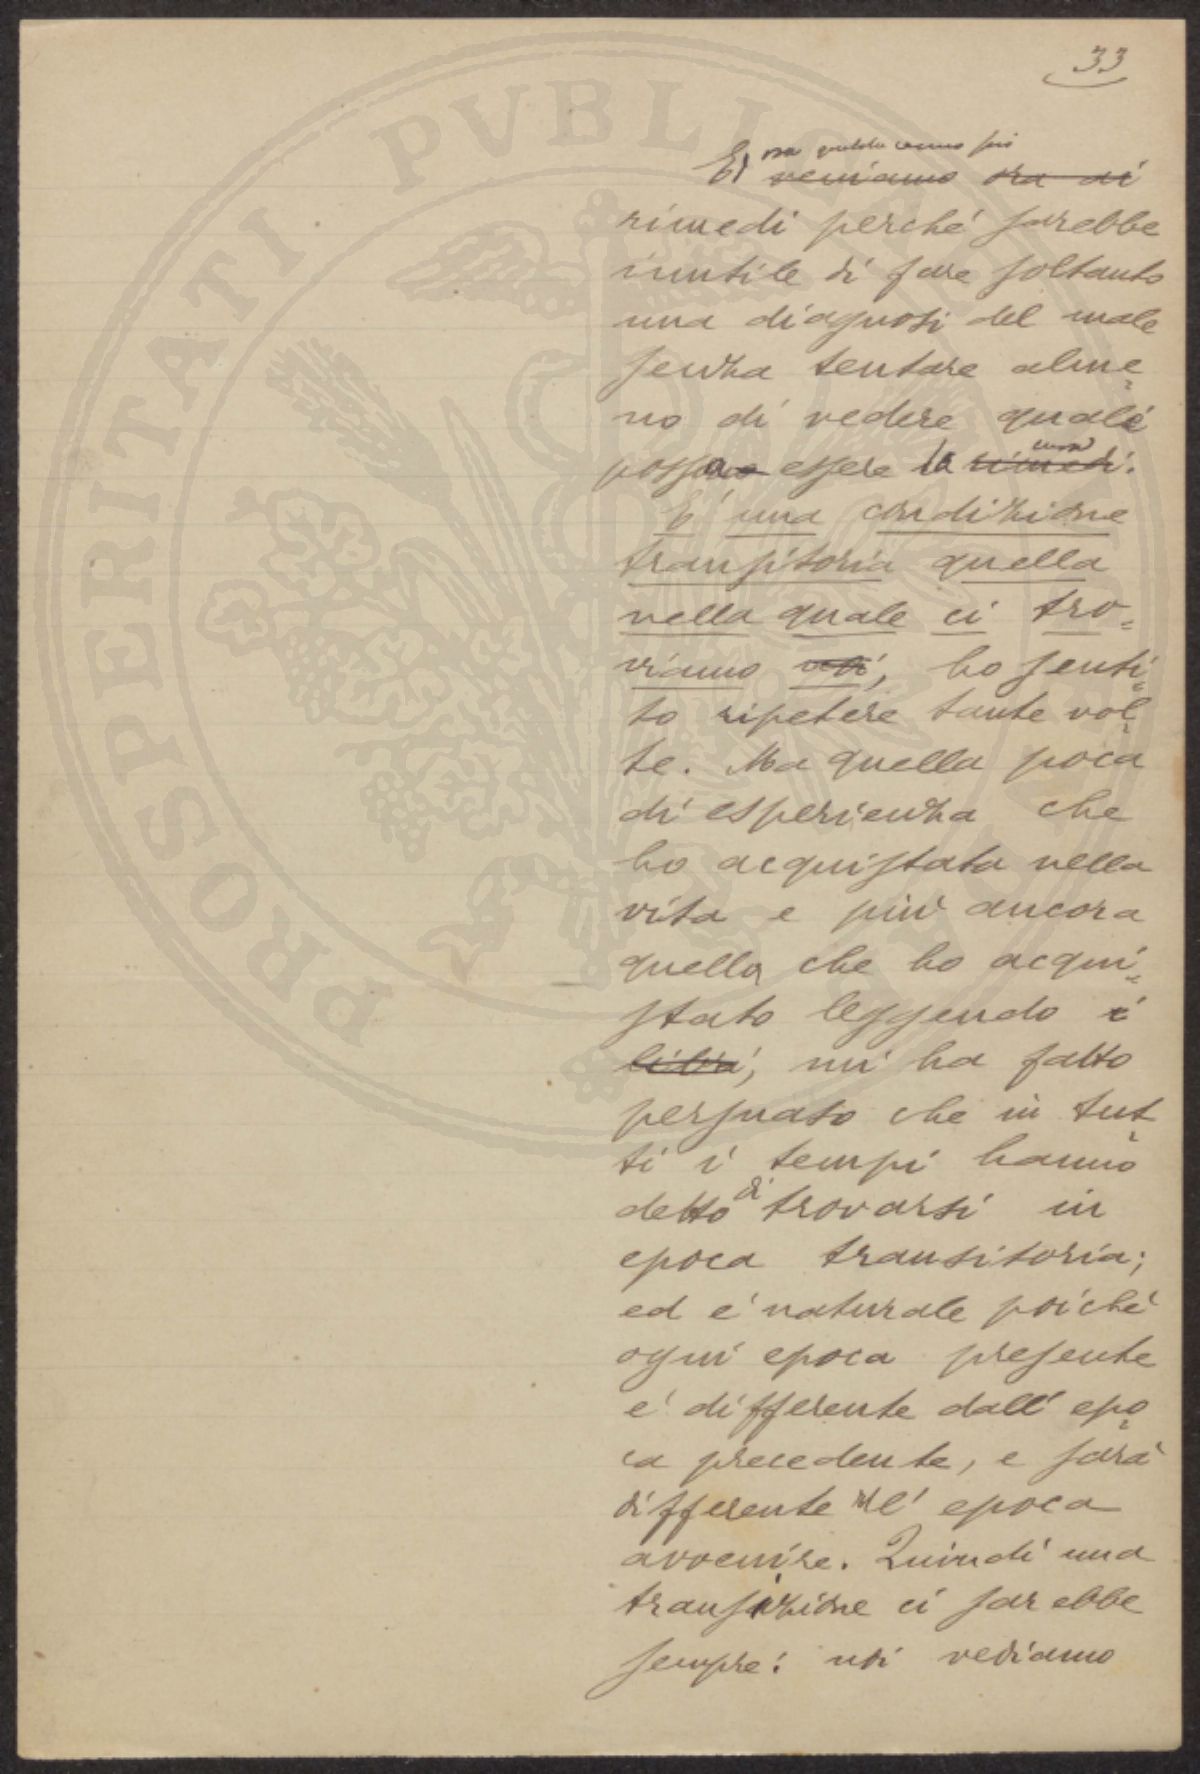 33
ora qualche cenno sui
Ed veniamo ora ai
rimedi perché sarebbe
inutile di fare soltanto
una diagnosi del male
senza tentare alme=
no di vedere quale
possa essere la rimedi.
cura
E' una condizione
transitoria quella
nella quale ci tro=
viamo noi, ho senti=
to ripetere tante vol=
te. Ma quella poca
di esperienza che
ho acquistata nella
vita e più ancora
quella che ho acqui=
stato leggendo i
libri, mi ha fatto
persuaso che in tut=
ti i tempi hanno
detto di trovarsi in
epoca transitoria;
ed é naturale poiché
ogni epoca presente
é differente dall' epo=
ca precedente, e sarà
differente l' epoca
avvenire. Quindi una
transizione ci sarebbe
sempre: noi vediamo
PROSPERITATI PVBLICAE